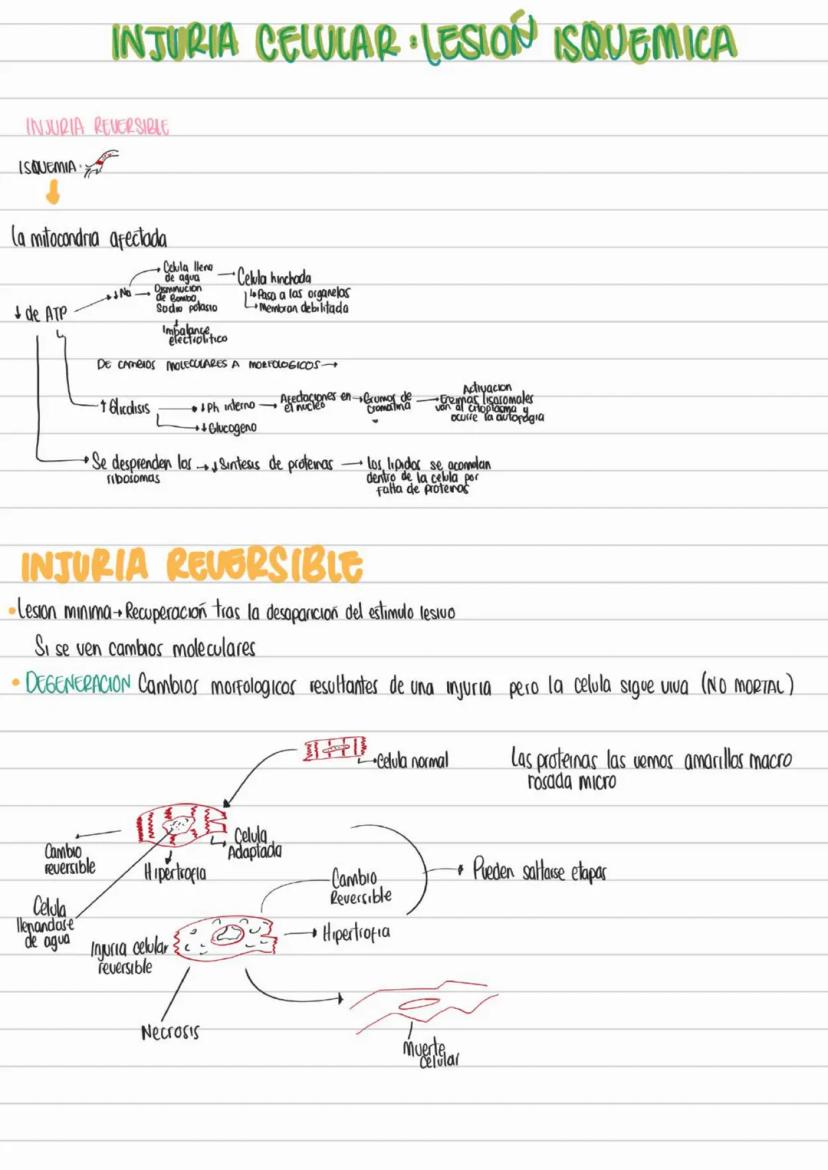 INJURIA CELULAR: LESIOŃ ISQUEMICA
INJURIA REVERSIBLE
ISQUEMIA:
La mitocondria afectada
↓ de ATP
→ ↓Na
→ Celula llena
de agua
→ Celula hinchada
↳ Pasa a las organelas
↳ Membran debilitada
→ Disminucion
de Bomba
Sodio potasio
↓
Imbalance
electrolitico
DE CAMBIOS MOLECULARES A MORFOLOGICOS →
↑ Glicolisis
→ ↓Ph interno → Afectaciones en
el nucleo
→ Grumos de
cromatina
→ Activacion
Enzimas lisosomales
van al citoplasma y
ocurre la autofagia
→ ↓Glucogeno
→ Se desprenden los
ribosomas
→ ↓ Sintesis de proteinas → los lipidos se acomulan
dentro de la celula por
falta de proteinas
INJURIA REVERSIBLE
• Lesion minima → Recuperacioń tras la desaparicion del estimulo lesivo
Si se ven cambios moleculares
• DEGENERACION Cambios morfologicos resultantes de una injuria pero la celula sigue viva (NO MORTAL)
Celula normal
Las proteinas las vemos amarillas macro
rosada micro
Cambio
reversible
Hipertrofia
Celula
Adaptada
Celula
llenandose
de agua
Cambio
Reversible
Pueden saltarse etapas
Injuria celular
reversible
Hipertrofia
Necrosis
Muerte
celular